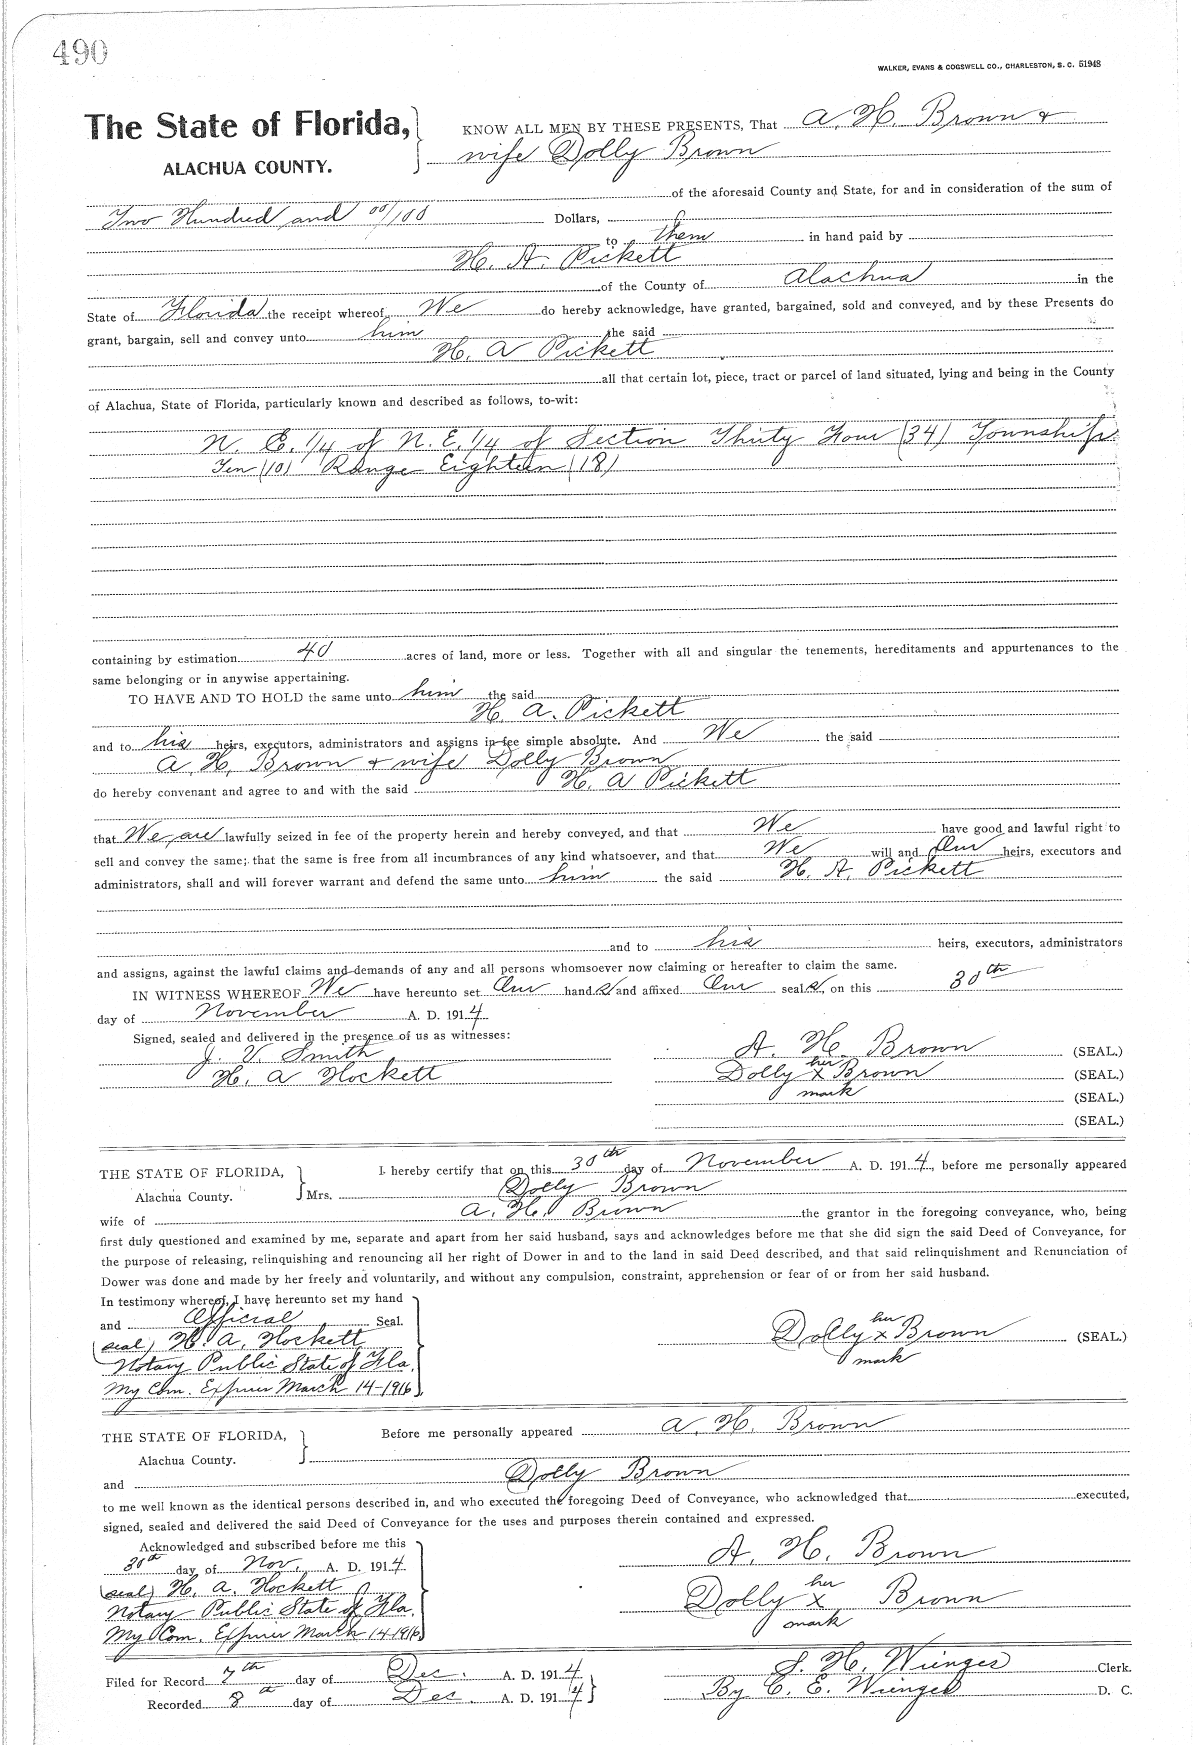 490
WALKER, EVANS & COGSWELL CO., CHARLESTON, S. C. 51948
The State of Florida, KNOW ALL MEN BY THESE PRESENTS, That A. H. Brown &
ALACHUA COUNTY. wife Dolly Brown
of the aforesaid County and State, for and in consideration of the sum of
Two Hundred and 00/100 Dollars,
to them in hand paid by
H. A. Pickett
of the County of Alachua in the
State of Florida the receipt whereof We do hereby acknowledge, have granted, bargained, sold and conveyed, and by these Presents do
grant, bargain, sell and convey unto him the said
H. A Pickett
all that certain lot, piece, tract or parcel of land situated, lying and being in the County
of Alachua, State of Florida, particularly known and described as follows, to-wit:
N. E. 1/4 of N. E. 1/4 of Section Thirty Four (34) Township
Ten (10) Range Eighteen (18)
containing by estimation 40 acres of land, more or less. Together with all and singular the tenements, hereditaments and appurtenances to the
same belonging or in anywise appertaining.
TO HAVE AND TO HOLD the same unto him the said
H. A. Pickett
and to his heirs, executors, administrators and assigns in fee simple absolute. And We the said
A. H. Brown & wife Dolly Brown
do hereby convenant and agree to and with the said H. A Pickett
that We are lawfully seized in fee of the property herein and hereby conveyed, and that We have good and lawful right to
sell and convey the same; that the same is free from all incumbrances of any kind whatsoever, and that We will and Our heirs, executors and
administrators, shall and will forever warrant and defend the same unto him the said H. A. Pickett
and to his heirs, executors, administrators
and assigns, against the lawful claims and demands of any and all persons whomsoever now claiming or hereafter to claim the same.
IN WITNESS WHEREOF We have hereunto set Our hands and affixed Our seals, on this 30th
day of November A. D. 1914
Signed, sealed and delivered in the presence of us as witnesses:
J. V. Smith A. H. Brown (SEAL.)
H. A Hockett Dolly her x mark Brown (SEAL.)
(SEAL.)
(SEAL.)
THE STATE OF FLORIDA, I hereby certify that on this 30th day of November A. D. 1914, before me personally appeared
Alachua County. Mrs. Dolly Brown
wife of A. H. Brown the grantor in the foregoing conveyance, who, being
first duly questioned and examined by me, separate and apart from her said husband, says and acknowledges before me that she did sign the said Deed of Conveyance, for
the purpose of releasing, relinquishing and renouncing all her right of Dower in and to the land in said Deed described, and that said relinquishment and Renunciation of
Dower was done and made by her freely and voluntarily, and without any compulsion, constraint, apprehension or fear of or from her said husband.
In testimony whereof, I have hereunto set my hand
and Official Seal.
(seal) H. A. Hockett Dolly her x mark Brown (SEAL.)
Notary Public State of Fla.
My Com. Expires March 14-1916
THE STATE OF FLORIDA, Before me personally appeared A. H. Brown
Alachua County.
and Dolly Brown
to me well known as the identical persons described in, and who executed the foregoing Deed of Conveyance, who acknowledged that executed,
signed, sealed and delivered the said Deed of Conveyance for the uses and purposes therein contained and expressed.
Acknowledged and subscribed before me this
30th day of Nov. A. D. 1914 A. H. Brown
(seal) H. A. Hockett
Notary Public State of Fla. Dolly her x mark Brown
My Com. Expires March 14-1916
Filed for Record 7th day of Dec. A. D. 1914 S. H. Wienges Clerk.
Recorded 8th day of Dec. A. D. 1914 By C. E. Wienges D. C.